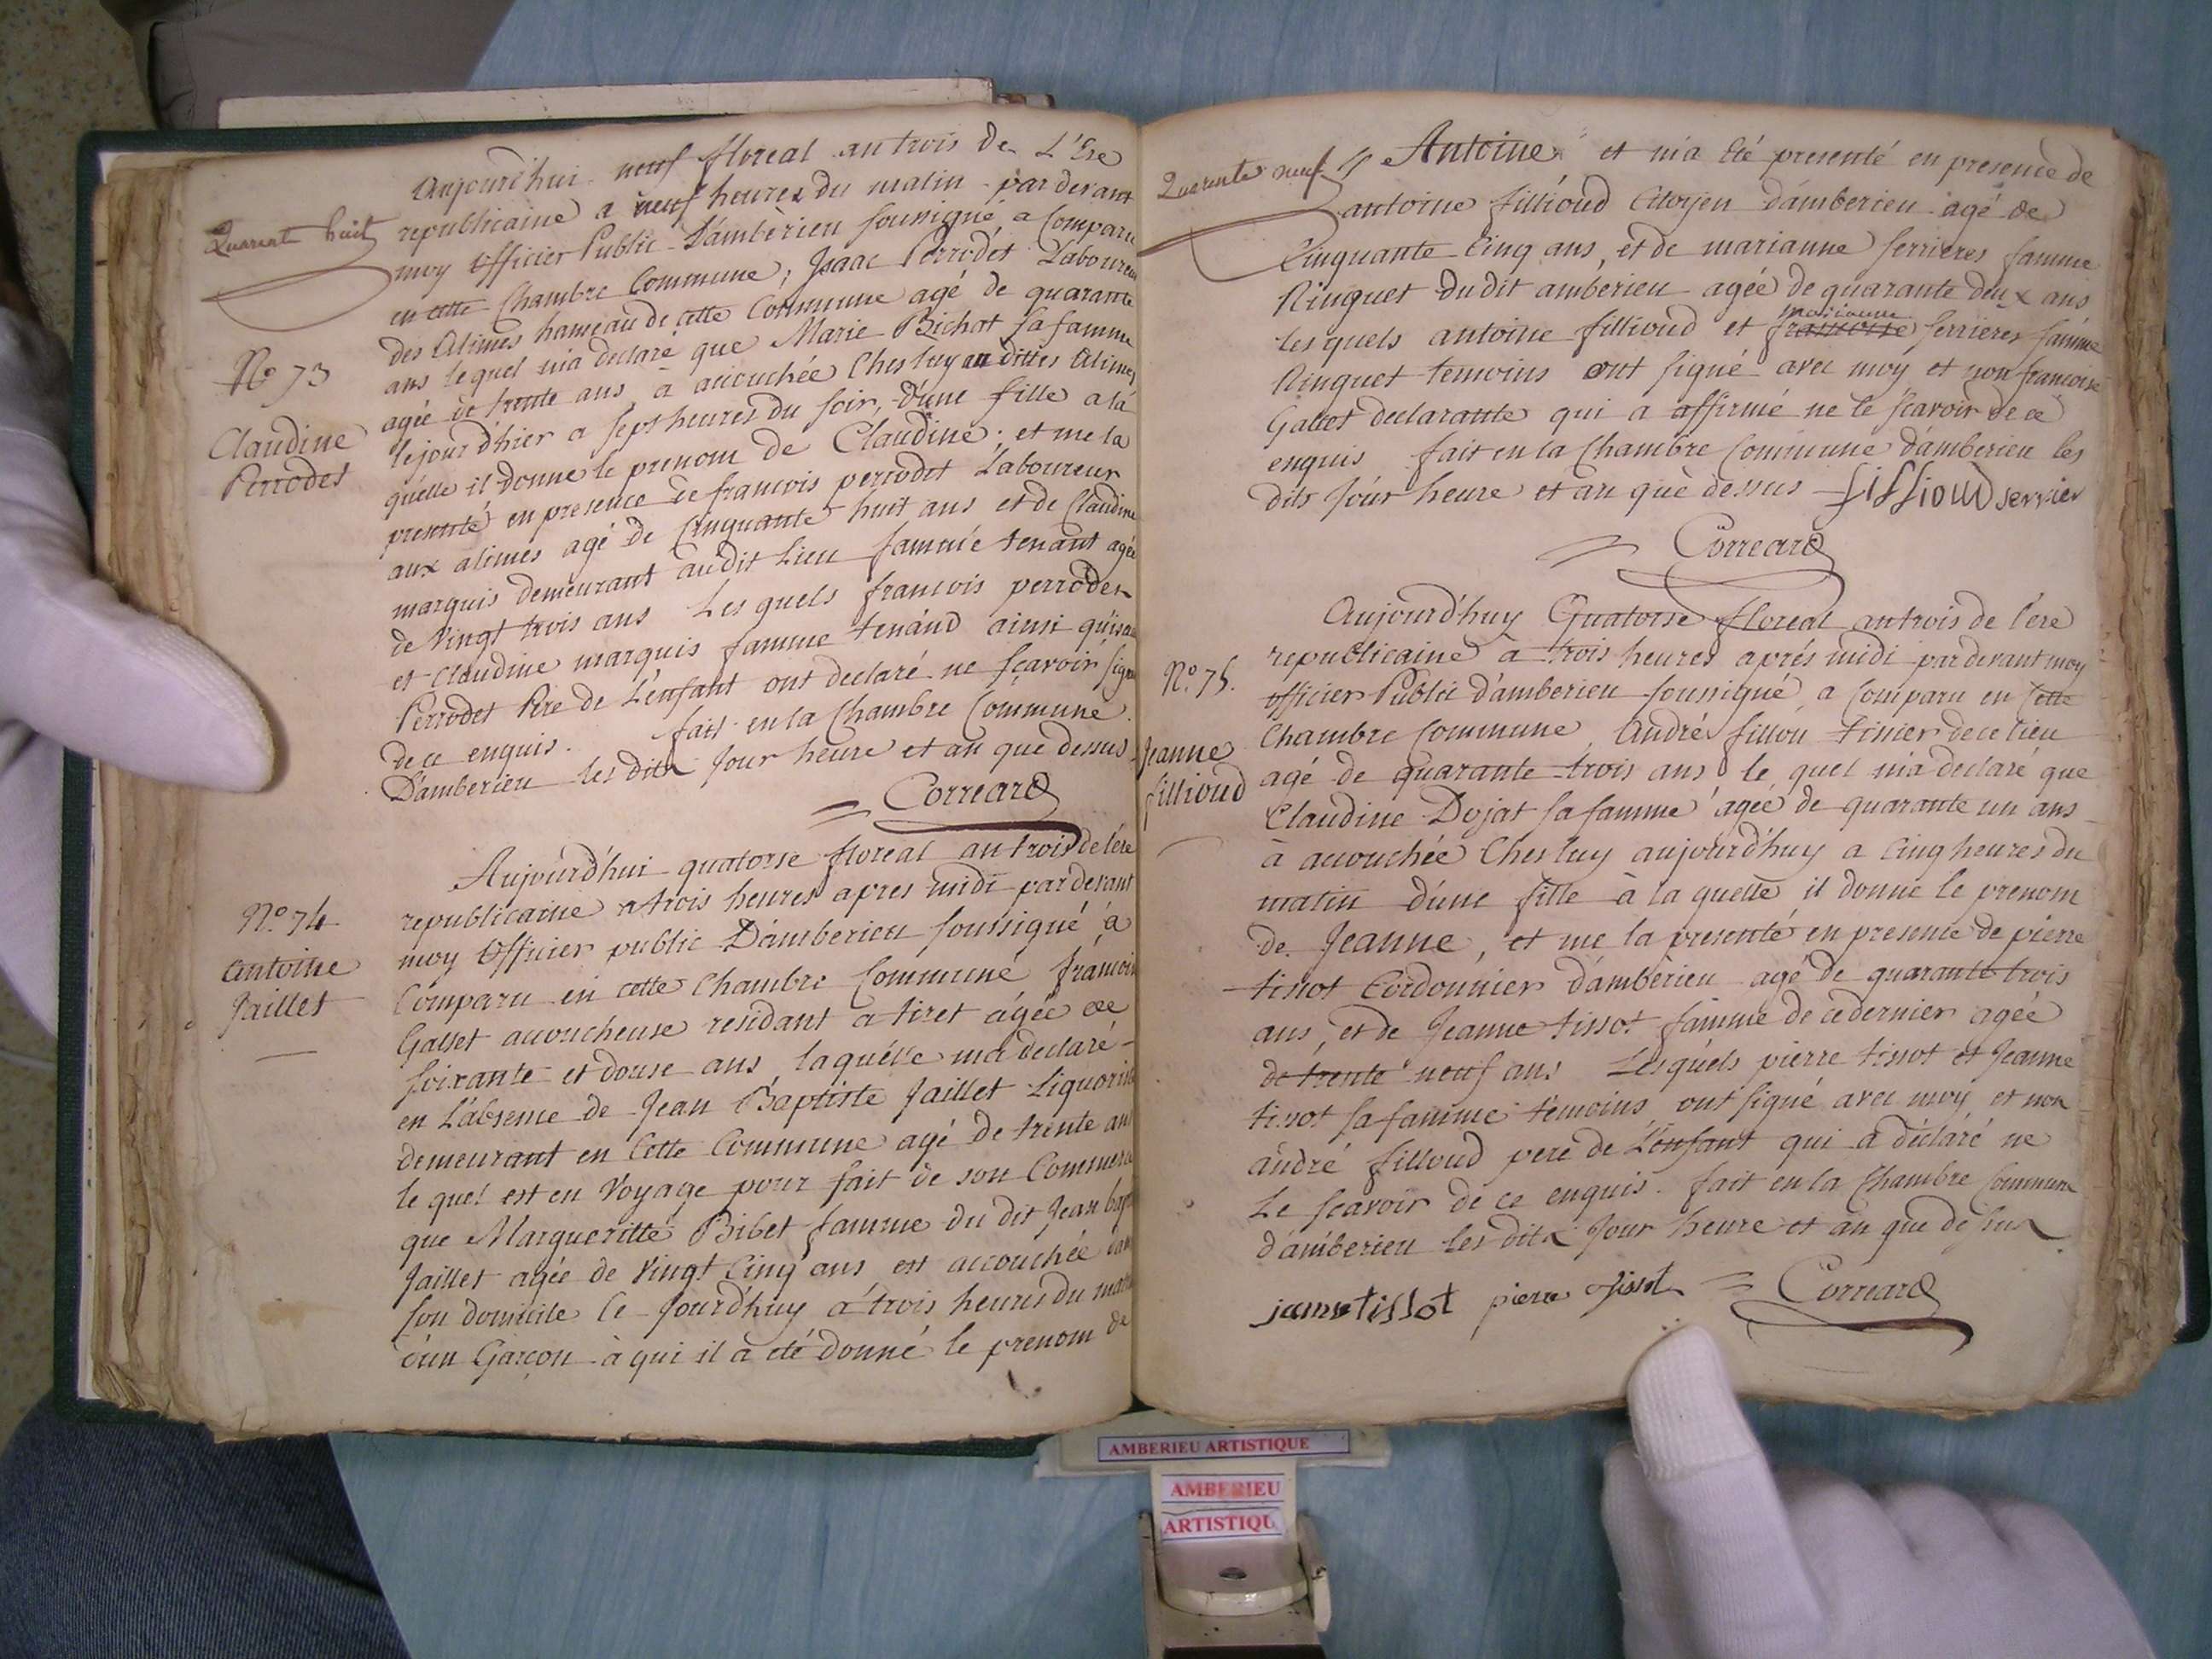 Quarente huit
Aujourd'hui neuf floreal an trois de L'Ere
republicaine a neuf heures du matin pardevant
moy Officier Public D'ambèrieu soussigné a Comparu
en cette Chambre Commune, Isaac Perrodet Laboureur
des Alimes hameau de cette Commune agé de quarante
ans lequel m'a declaré que Marie Bichat sa famme
agée de trente ans à accouchée Ches luy au dittes Alimes
le jour d'hier a sept heures du soir, d'une fille a la
quelle il donne le prenom de Claudine ; et me la
presenté en presence de francois perrodet Laboureur
aux alimes agé de Cinquante huit ans et de Claudine
marquis demeurant audit Lieu famme tenant agée
de Vingt trois ans Lesquels francois perrodet
et Claudine marquis famme tenand ainsi qu'isaac
Perrodet Pere de L'enfant ont declaré ne sçavoir signé
de ce enquis. fait en la Chambre Commune
D'amberieu les dits Jour heure et an que dessus
Correard
No 73
Claudine
Perrodet
Aujourd'hui quatorse floreal an trois de l'ére
republicaine a trois heures apres midi pardevant
moy Officier public D'amberieu soussigné a
Comparu en cette Chambre Communé francoise
Gallet accoucheuse residant a tiret agée de
soixante et douse ans laquelle m'a declaré
en L'absence de Jean Baptiste Jaillet Liquoriste
demeurant en Cette Commune agé de trente ans
le quel est en Voyage pour fait de son Commerce
que Margueritte Bibet famme du dit Jean bapt
Jaillet agée de Vingt Cinq ans est accouchée dans
son domicile le Jourd'huy a trois heures du matin
d'un Garçon à qui il a eté donné le prenom de
No. 74
Antoine
Jaillet
Quarente neuf
Antoine et m'a Eté presenté en presence de
antoine fillioud Citoyen d'amberieu agé de
Cinquante Cinq ans, et de marianne serrieres famme
Ringuet dudit ambérieu agée de quarante deux ans
les quels antoine fillioud et francoise marianne serrieres famme
Ringuet temoins ont signé avec moy et non francoise
Gallet declarante qui a affirmé ne le sçavoir de ce
enquis fait en la Chambre Commune d'amberieu les
dits Jour heure et an que dessus fillioud serrier
Correard
Aujourd'huy Quatorse floreal an trois de l'ére
republicaine à trois heures aprés midi pardevant moy
officier Public d'amberieu soussigné, a Comparu en Cette
Chambre Commune, André fillou tissier de ce lieu
agé de quarante trois ans le quel m'a declaré que
Claudine Dojat sa famme agée de quarante un ans
à accouchée Ches luy aujourd'huy a Cinq heures du
matin d'une fille à la quelle il donne le prenom
de Jeanne, et me la presenté en presence de pierre
tissot Cordonnier d'ambèrieu agé de quarante trois
ans, et de Jeanne tissot famme de ce dernier agée
de trente neuf ans Lesquels pierre tissot et Jeanne
tissot sa famme témoins ont signé avec moy et non
andré filloud pere de L'enfant qui a déclaré ne
Le scavoir de ce enquis. fait en la Chambre Commune
d'amberieu les dits Jour heure et an que dessus
jeanne tissot pierre tissot Correard
No. 75.
Jeanne
fillioud
AMBERIEU ARTISTIQUE
AMBERIEU
ARTISTIQU